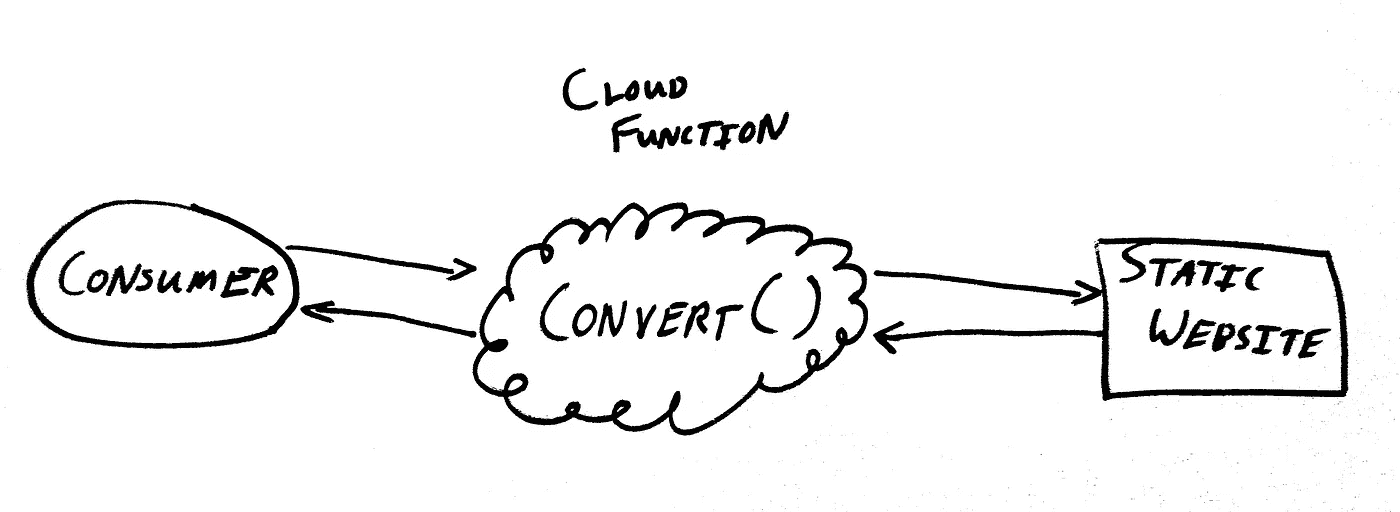 CLOUD
FUNCTION
CONSUMER
CONVERT()
STATIC
WEBSITE